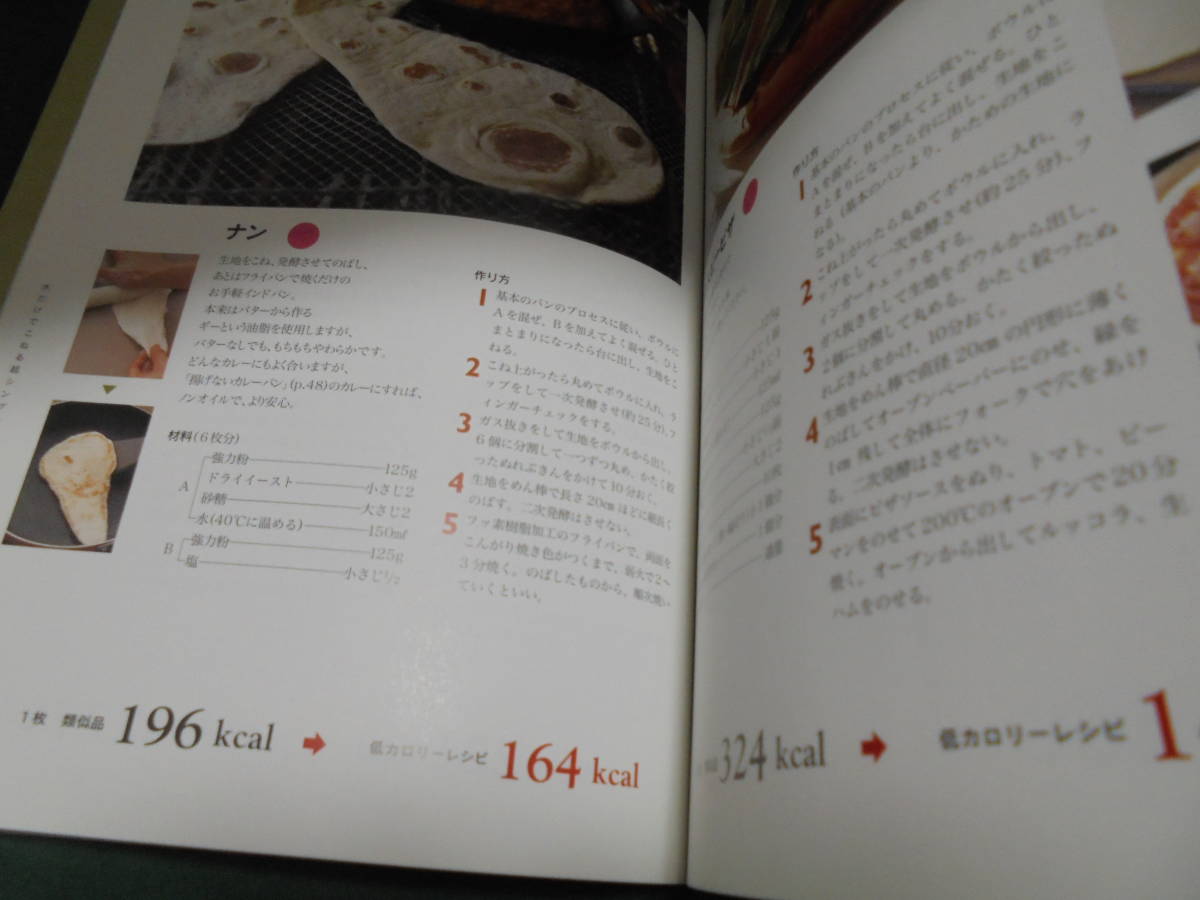 ナン
生地をこね、発酵させてのばし、
あとはフライパンで焼くだけの
お手軽インドパン。
本来はバターから作る
ギーという油脂を使用しますが、
バターなしでも、もちもちやわらかです。
どんなカレーにもよく合いますが、
「揚げないカレーパン」(p.48)のカレーにすれば、
ノンオイルで、より安心。
材料(6枚分)
A
強力粉 125g
ドライイースト 小さじ2
砂糖 大さじ2
水(40℃に温める) 150ml
B
強力粉 125g
塩 小さじ1/2
作り方
1 基本のパンのプロセスに従い、ボウルに
Aを混ぜ、Bを加えてよく混ぜる。ひと
まとまりになったら台に出し、生地をこ
ねる。
2 こね上がったら丸めてボウルに入れ、ラ
ップをして一次発酵させ(約25分)、フ
ィンガーチェックをする。
3 ガス抜きをして生地をボウルから出し、
6個に分割して一つずつ丸め、かたく絞
ったぬれぶきんをかけて10分おく。
4 生地をめん棒で長さ20cmほどに縦長く
のばす。二次発酵はさせない。
5 フッ素樹脂加工のフライパンで、両面を
こんがり焼き色がつくまで、弱火で2〜
3分焼く。のばしたものから、順次焼い
ていくといい。
1枚 類似品 196 kcal
低カロリーレシピ 164 kcal
作り方
1 基本のパンのプロセスに従い、ボウルに
Aを混ぜ、Bを加えてよく混ぜる。ひと
まとまりになったら台に出し、生地をこ
ねる(基本のパンより、かための生地に
なる)。
2 こね上がったら丸めてボウルに入れ、ラ
ップをして一次発酵させ(約25分)、フ
ィンガーチェックをする。
3 ガス抜きをして生地をボウルから出し、
2個に分割して丸める。かたく絞ったぬ
れぶきんをかけ、10分おく。
4 生地をめん棒で直径20cmの円形に薄く
のばしてオーブンペーパーにのせ、縁を
1cm残して全体にフォークで穴をあけ
る。二次発酵はさせない。
5 表面にピザソースをぬり、トマト、ピー
マンをのせて200℃のオーブンで20分
焼く。オーブンから出してルッコラ、生
ハムをのせる。
324 kcal
低カロリーレシピ 1